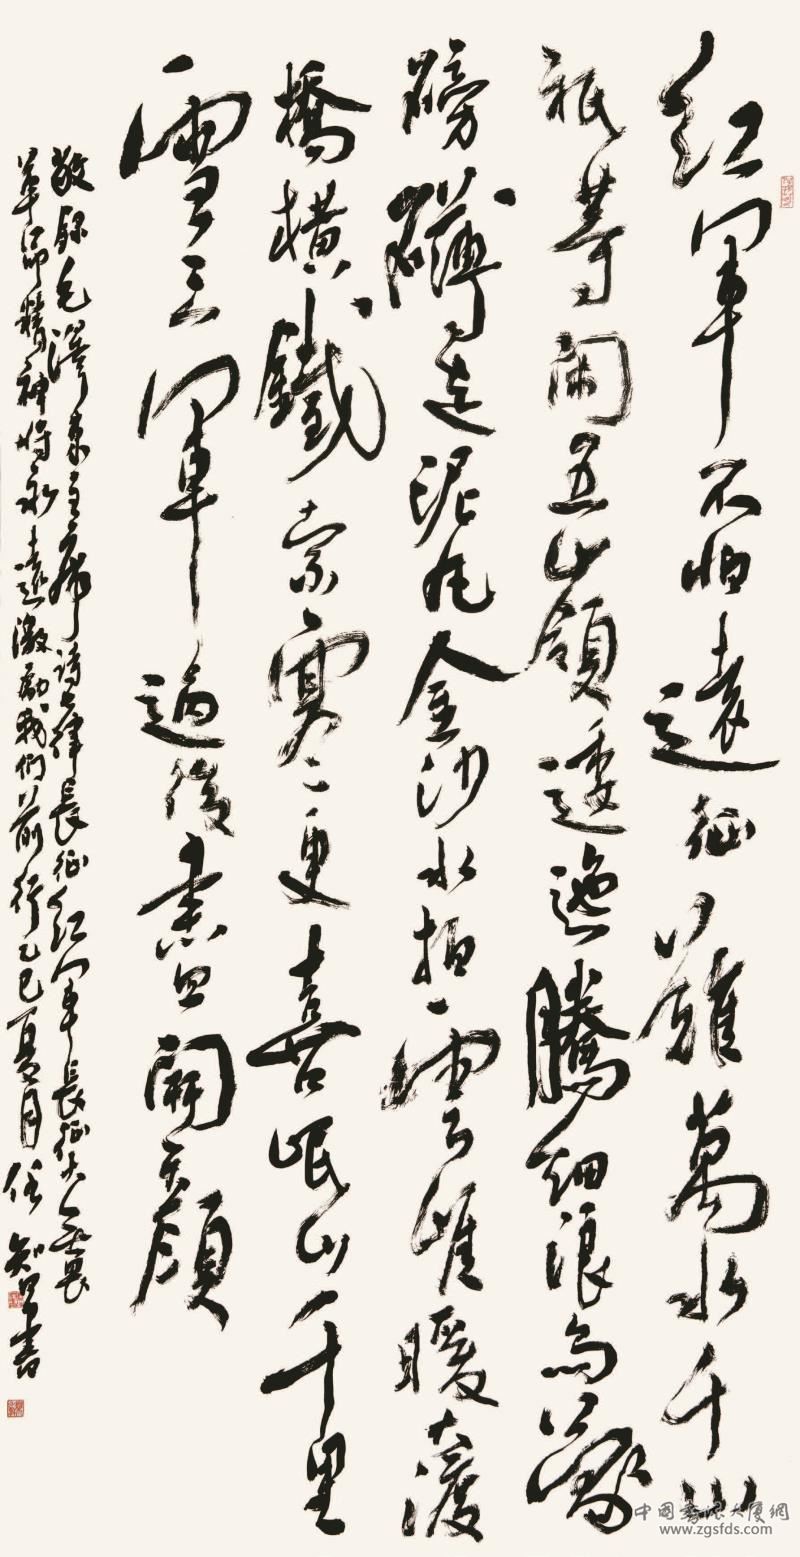 紅軍不怕遠征難萬水千山
祇等閑五嶺逶迤騰細浪烏蒙
磅礴走泥丸金沙水拍雲崖暖大渡
橋橫鐵索寒更喜岷山千里
雪三軍過後盡開顏
敬録毛澤東主席詩七律長征紅軍長征大無畏
革命精神將永遠激勵我們前行乙巳夏月任書
中國書法大廈網
www.zgsfds.com